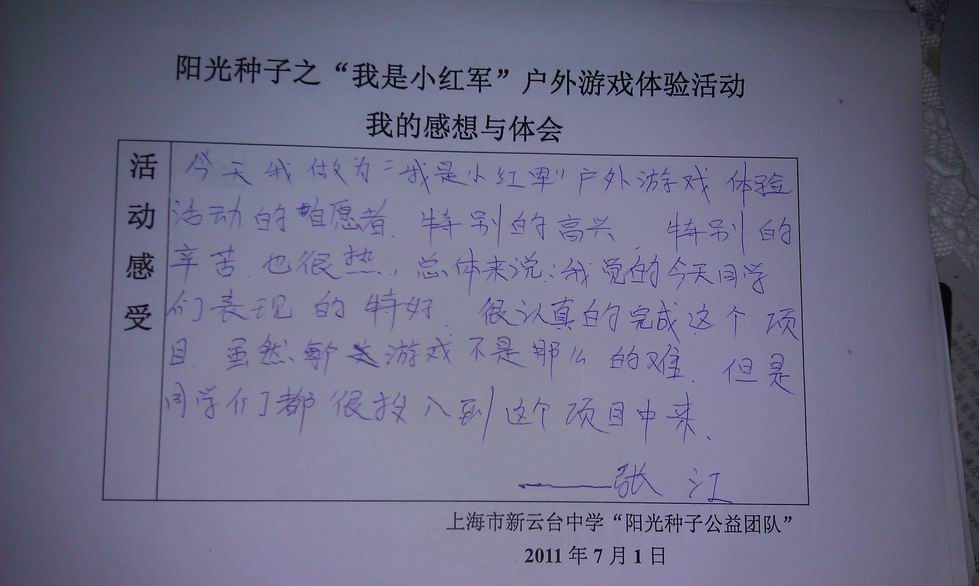 阳光种子之“我是小红军”户外游戏体验活动
我的感想与体会
活动感受
今天我做为“我是小红军”户外游戏体验
活动的自愿者.特别的高兴.特别的
辛苦.也很热,总体来说:我觉的今天同学
们表现的特好.很认真的完成这个项
目.虽然、每个游戏不是那么的难.但是
同学们都很投入到这个项目中来.
——张江
上海市新云台中学“阳光种子公益团队”
2011年7月1日